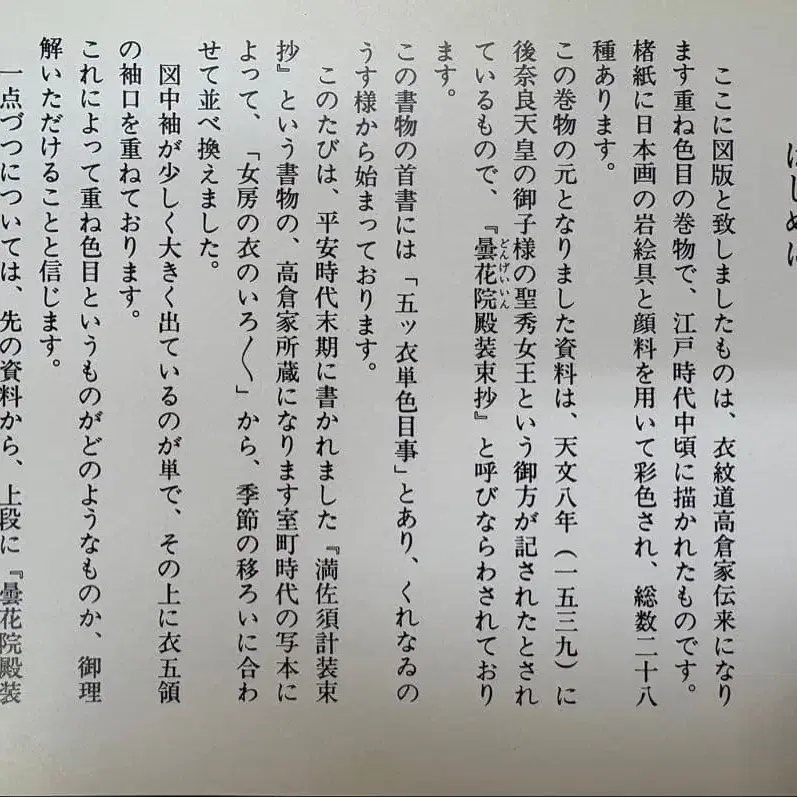 はじめに
ここに図版と致しましたものは、衣紋道高倉家伝来になり
ます重ね色目の巻物で、江戸時代中頃に描かれたものです。
楮紙に日本画の岩絵具と顔料を用いて彩色され、総数二十八
種あります。
この巻物の元となりました資料は、天文八年（一五三九）に
後奈良天皇の御子様の聖秀女王という御方が記されたとされ
ているもので、『曇花院殿装束抄』と呼びならわされており
どんげいいん
ます。
この書物の首書には「五ッ衣単色目事」とあり、くれなゐの
うす様から始まっております。
このたびは、平安時代末期に書かれました『満佐須計装束
抄』という書物の、高倉家所蔵になります室町時代の写本に
よって、「女房の衣のいろ〱」から、季節の移ろいに合わ
せて並べ換えました。
図中袖が少しく大きく出ているのが単で、その上に衣五領
の袖口を重ねております。
これによって重ね色目というものがどのようなものか、御理
解いただけることと信じます。
一点づつについては、先の資料から、上段に『曇花院殿装